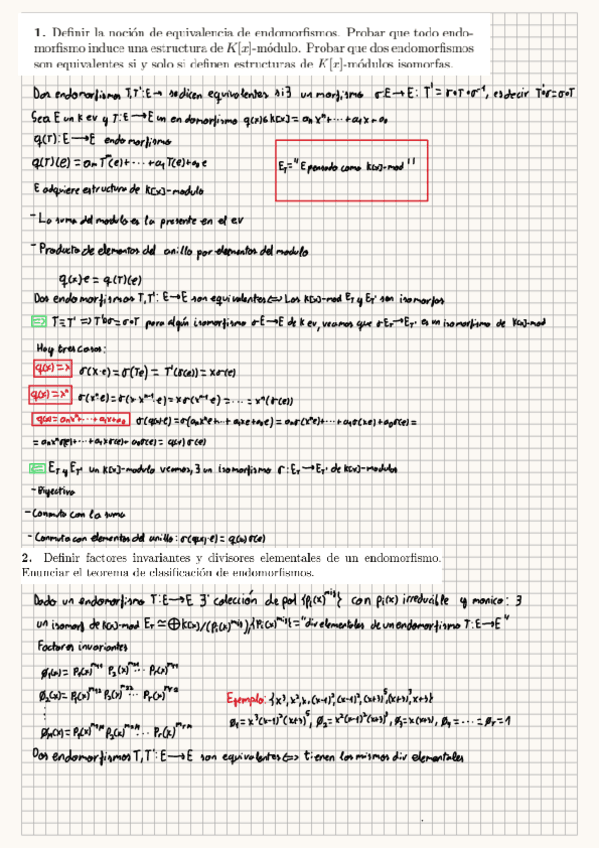 1. Definir la noción de equivalencia de endomorfismos. Probar que todo endo-
morfismo induce una estructura de K[x]-módulo. Probar que dos endomorfismos
son equivalentes si y solo si definen estructuras de K[x]-módulos isomorfas.
Dos endomorfismos T,T':E→ se dicen equivalentes si ∃ un morfismo σE→E: T'=σ∘T∘σ⁻¹, es decir T'∘σ=σ∘T
Sea E un k ev y T:E→E un endomorfismo q(x)∈k[x]=aₙxⁿ+⋯+a₁x+a₀
q(T):E→E endomorfismo
q(T)(e)=aₙTⁿ(e)+⋯+a₁T(e)+a₀e
E_T="E pensado como k[x]-mod"
E adquiere estructura de k[x]-modulo
- La suma del modulo es la presente en el ev
- Producto de elementos del anillo por elementos del modulo
q(x)e = q(T)(e)
Dos endomorfismos T,T':E→E son equivalentes⟺ Los k[x]-mod E_T y E_T' son isomorfos
⟹ T≡T' ⟹ T'∘σ=σ∘T para algún isomorfismo σE→E de k ev, veamos que σE_T→E_T' es un isomorfismo de k[x]-mod
Hay tres casos:
q(x)=x σ(x·e)=σ(Te)=T'(σ(e))=xσ(e)
q(x)=xⁿ σ(xⁿe)=σ(x·xⁿ⁻¹e)=xσ(xⁿ⁻¹e)=⋯=xⁿ(σ(e))
q(x)=aₙxⁿ+⋯+a₁x+a₀ σ(q(x)e)=σ(aₙxⁿe+⋯+a₁xe+a₀e)=aₙσ(xⁿe)+⋯+a₁σ(xe)+a₀σ(e)=
=aₙxⁿσ(e)+⋯+a₁xσ(e)+a₀σ(e)=q(x)σ(e)
⟸ E_T y E_T' un k[x]-modulo veamos, ∃ un isomorfismo σ:E_T→E_T' de k[x]-modulos
- Biyectivo
- Conmuta con la suma
- Conmuta con elementos del anillo: σ(q(x)·e)=q(x)σ(e)
2. Definir factores invariantes y divisores elementales de un endomorfismo.
Enunciar el teorema de clasificación de endomorfismos.
Dado un endomorfismo T:E→E ∃ colección de pol {pᵢ(x)^nij} con pᵢ(x) irreducible y monico: ∃
un isomorf de k[x]-mod E_T≃⊕k[x]/(pᵢ(x)^nij){pᵢ(x)^nij}="div elementales de un endomorfismo T:E→E"
Factores invariantes
Ø₁(x)= P₁(x)^n11 P₂(x)^n21 ⋯ Pᵣ(x)^nr1
Ø₂(x)= P₁(x)^n12 P₂(x)^n22 ⋯ Pᵣ(x)^nr2
Ejemplo: {x³,x²,x,(x-1)²,(x-1)²,(x+3)⁵,(x+3)³,x+3}
⋮
Ø₁=x³(x-1)²(x+3)⁵, Ø₂=x²(x-1)²(x+3)³, Ø₃=x(x+3), Ø₄=⋯=Øᵣ=1
Dos endomorfismos T,T':E→E son equivalentes⟺ tienen los mismos div elementales